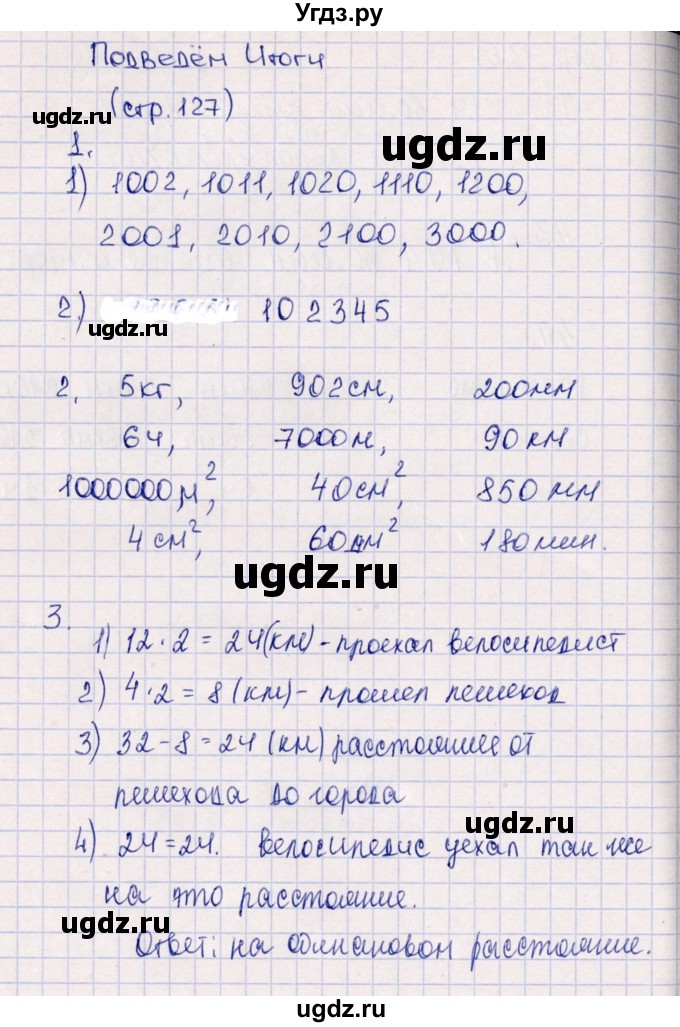 Угдз.ру
Подведём Итоги
ugdz.ru
(стр. 127)
ugdz.ru
1.
1) 1002, 1011, 1020, 1110, 1200,
2001, 2010, 2100, 3000.
2) 102345
ugdz.ru
2. 5кг, 902см, 200мм
6ч, 7000м, 90 км
1000000м², 40см², 850 мм
4 см², 60дм² 180 мин.
ugdz.ru
3.
1) 12·2 = 24(км) - проехал велосипедист
2) 4·2 = 8 (км) - прошел пешеход
3) 32-8=24 (км) расстояние от
пешехода до города
ugdz.ru
4) 24=24. Велосипедис уехал так же
на это расстояние.
ugdz.ru
Ответ: на одинаковом расстояние.
ugdz.ru
ugdz.ru